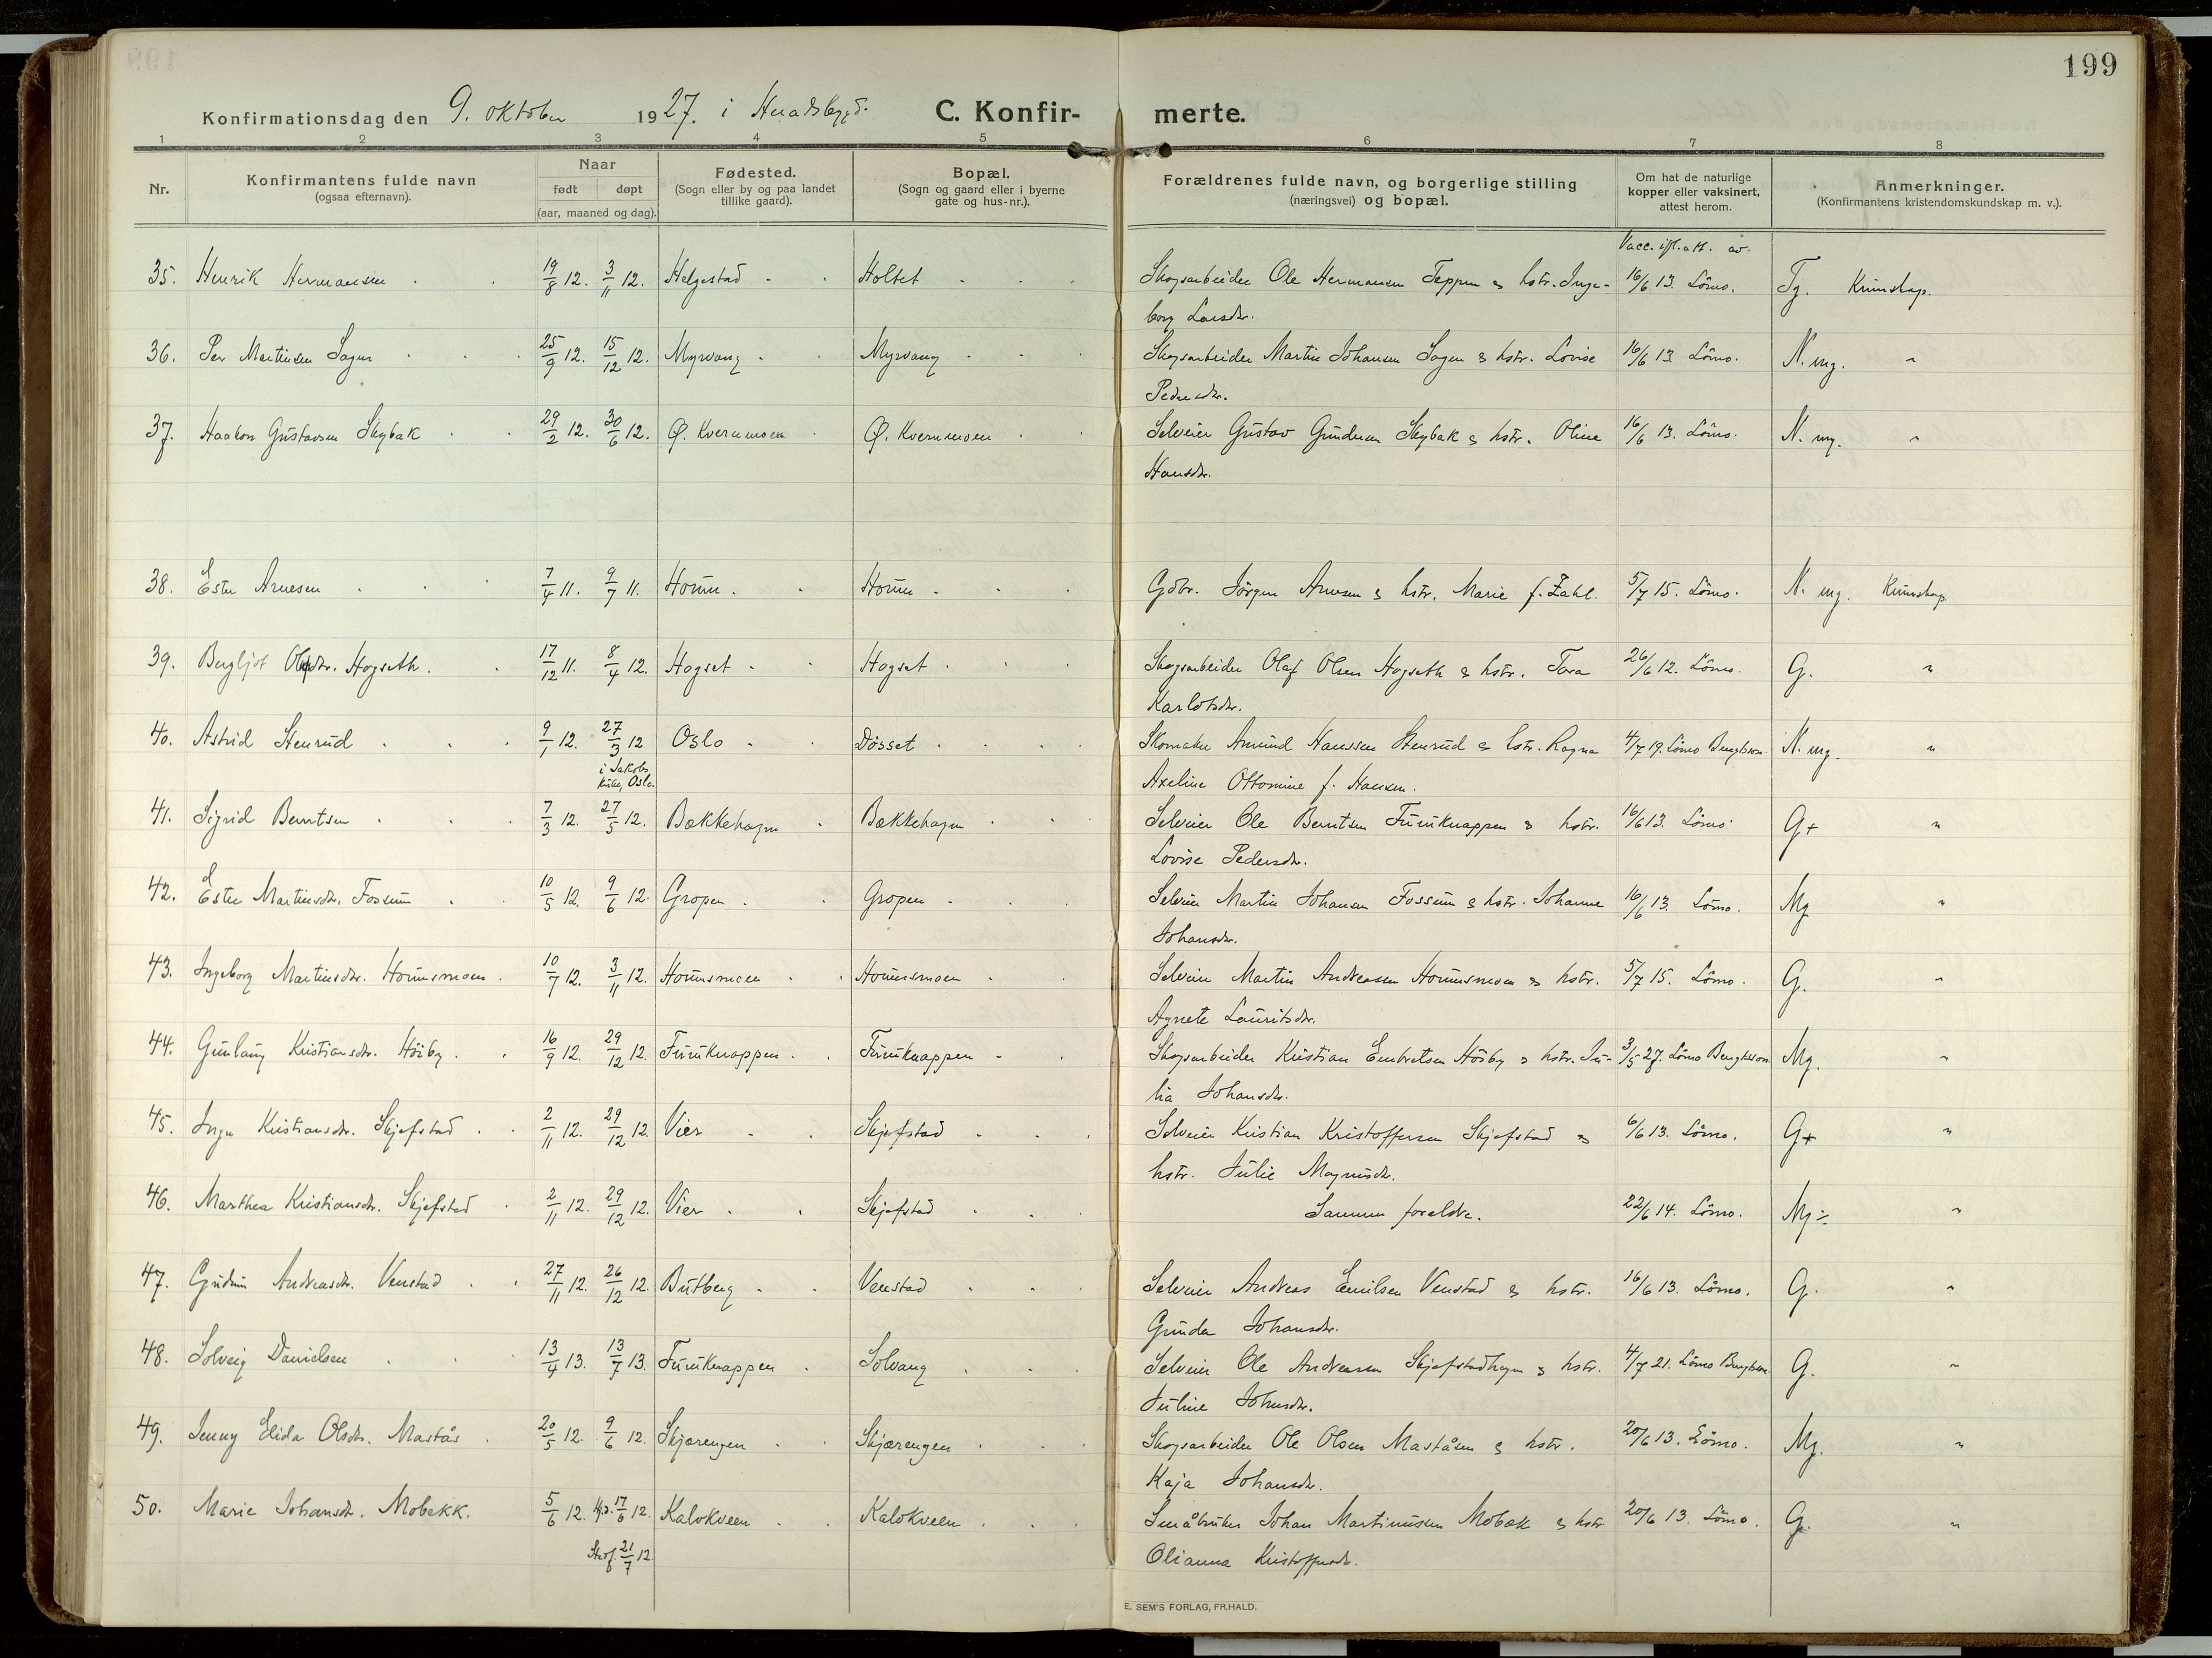 199
Konfirmationsdag den 9. oktober 1927. i
C. Konfirmerte.
1 2 3 4 5 6 7 8
Nr.
Konfirmantens fulde navn
(ogsaa efternavn).
Naar
født døpt
(aar, maaned og dag).
Fødested.
(Sogn eller by og paa landet
tillike gaard).
Bopæl.
(Sogn og gaard eller i byerne
gate og hus-nr.).
Forældrenes fulde navn, og borgerlige stilling
(næringsvei) og bopæl.
Om hat de naturlige
kopper eller vaksinert,
attest herom.
Anmerkninger.
(Konfirmantens kristendomskundskap m. v.).
Vacc. ifl. att. av.
35. Henrik Hermansen 19/8 12. 3/11 12. Helgestad Holtet Skogsarbeider Ole Hermansen Teppen & hstr. Inge- 16/6 13. Lömo. Tg. Kunnskap.
borg Larsdtr.
36. Per Martinsen Sagen 25/9 12. 15/12 12. Myrvang Myrvang Skogsarbeider Martin Johansen Sagen & hstr. Lovise 16/6 13. Lömo. N. mg. "
Pedersdtr.
37. Haakon Gustavsen Skybak 29/2 12. 30/6 12. Ø. Kvernmoen Ø. Kvernmoen Selveier Gustav Gundersen Skybak & hstr. Oline 16/6 13. Lömo. N. mg. "
Hansdtr.
38. Ester Arnesen 7/4 11. 9/7 11. Hornn Hornn Gdbr. Jörgen Arnesen & hstr. Marie f. Zahl. 5/7 15. Lömo. N. mg. Kunnskap
39. Bergljot Olsdtr. Hogseth. 17/12 11. 8/4 12. Hogset Hogset Skogsarbeider Olaf Olsen Hogseth & hstr. Tora 26/6 12. Lömo. G. "
Karlotsdtr.
40. Astrid Stenrud 9/1 12. 27/3 12 Oslo Døsset Skomaker Amund Hanssen Stenrud & hstr. Ragna 4/7 19. Lömo Bengtson. N. mg. "
i Jakobs
kirke, Oslo.
Axeline Ottomine f. Hansen.
41. Sigrid Berntsen 7/3 12. 27/5 12. Bækkehagen Bækkehagen Selveier Ole Berntsen Furuknappen & hstr. 16/6 13. Lömo G+ "
Lovise Pedersdtr.
42. Ester Martinsdtr. Fossum 10/5 12. 9/6 12. Gropen Gropen Selveier Martin Johansen Fossum & hstr. Johanne 16/6 13. Lömo. Mg "
Johansdtr.
43. Ingeborg Martinsdtr. Hornnsmoen 10/7 12. 3/11 12. Hornnsmoen Hornnsmoen Selveier Martin Andreassen Hornnsmoen & hstr. 5/7 15. Lömo. G. "
Agnete Lauritsdtr.
44. Gunlaug Kristiansdtr. Höiby 16/9 12. 29/12 12. Furuknappen Furuknappen Skogsarbeider Kristian Embretsen Höiby & hstr. Ju- 3/5 27. Lömo Bengtson Mg. "
lia Johansdtr.
45. Inga Kristiansdtr. Skjefstad 2/11 12. 29/12 12. Vier Skjefstad Selveier Kristian Kristoffersen Skjefstad & 6/6 13. Lömo. G+ "
hstr. Julie Magnusdtr.
46. Marthea Kristiansdtr. Skjefstad 2/11 12. 29/12 12. Vier Skjefstad Samme foreldre. 22/6 14. Lömo. Mg ÷ "
47. Gudrun Andreasdtr. Venstad 27/11 12. 26/12 12. Butberg Venstad Selveier Andreas Emilsen Venstad & hstr. 16/6 13. Lömo. G. "
Gunda Johansdtr.
48. Solveig Danielsen 13/4 13. 13/7 13. Furuknappen Solvang Selveier Ole Andreasen Skjefstadhagen & hstr. 4/7 21. Lömo Bengtson G. "
Juline Johnsdtr.
49. Jenny Elida Olsdtr. Mastås 20/5 12. 9/6 12. Skjærengen Skjærengen Skogsarbeider Ole Olsen Maståsen & hstr. 20/6 13. Lömo. Mg. "
Kaja Johansdtr.
50. Marie Johansdtr. Mobækk. 5/6 12. Hjd. 17/6 12. Kalvkveen Kalvkveen Småbruker Johan Martinussen Mobæk & hstr 20/6 13. Lömo. G. "
Stadf. 21/7 12.
Olianna Kristoffersdtr.
E. SEM'S FORLAG, FR.HALD.